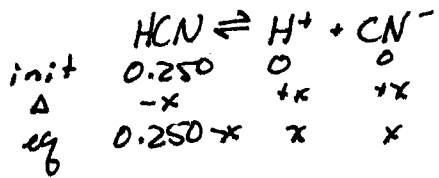 HCN ⇌ H⁺ + CN⁻
init 0.250 0 0
Δ -x +x +x
eq 0.250-x x x